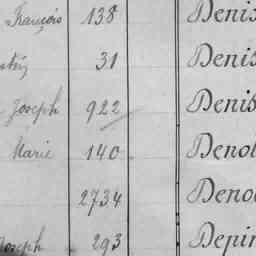 François 138 Denis
31 Denis
Joseph 922 Denis
Marie 140 Denol
2734 Deno
Joseph 293 Depin